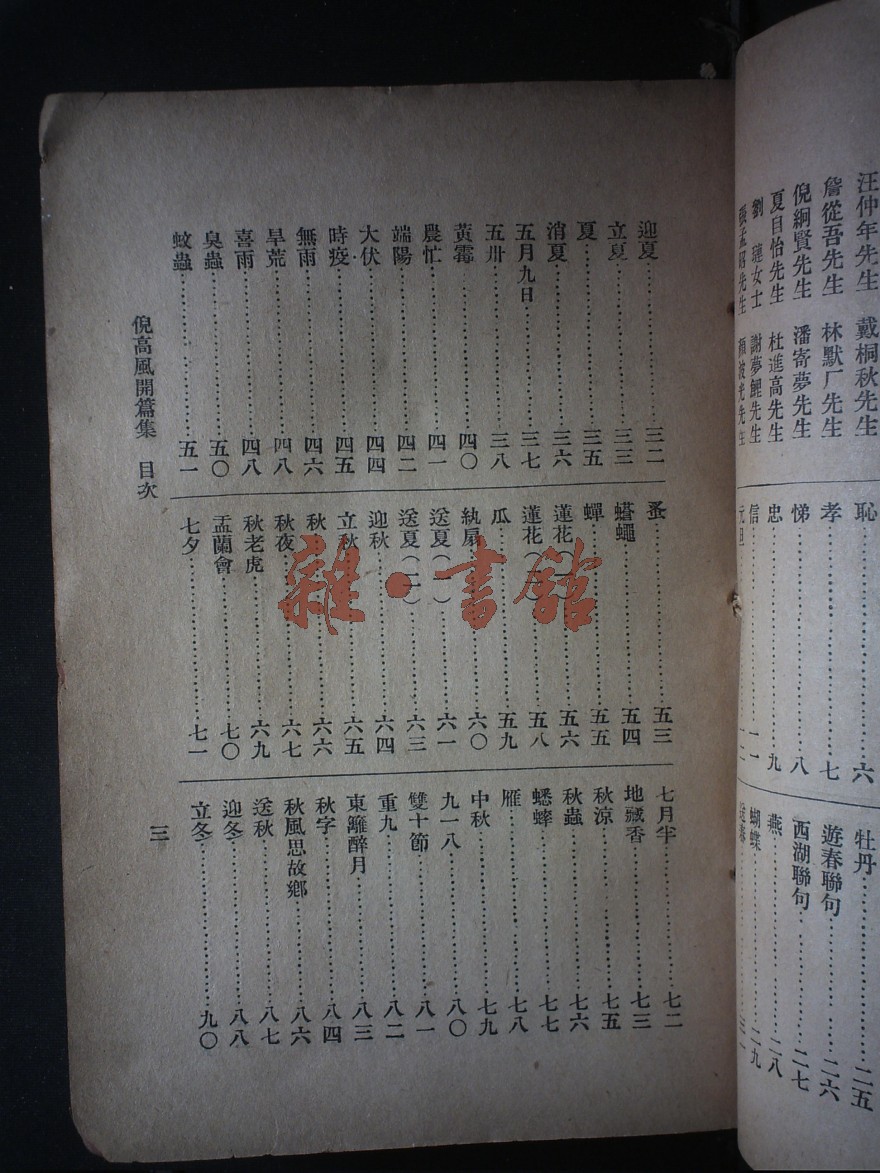 汪仲年先生 戴桐秋先生
詹從吾先生 林默厂先生
倪綱賢先生 潘寄夢先生
夏目怡先生 杜進高先生
劉 璉女士 謝夢鯉先生
先生 先生
恥 六
孝 七
悌 八
忠 九
信 一一
元旦 一二
牡丹 二五
遊春聯句 二六
西湖聯句 二七
燕 二八
蝴蝶 二九
迎夏 三二
立夏 三三
夏 三五
消夏 三六
五月九日 三七
五卅 三八
黃霉 四〇
農忙 四一
端陽 四二
大伏 四四
時疫 四五
無雨 四六
旱荒 四八
喜雨 四八
臭蟲 五〇
蚊蟲 五一
蚤 五三
蠅 五四
蟬 五五
蓮花(一) 五六
蓮花(二) 五八
瓜 五九
紈扇 六〇
送夏(一) 六一
送夏(二) 六三
迎秋 六四
立秋 六五
秋 六六
秋夜 六七
秋老虎 六九
盂蘭會 七〇
七夕 七一
七月半 七二
地藏香 七三
秋涼 七五
秋蟲 七六
蟋蟀 七七
雁 七八
中秋 七九
九一八 八〇
雙十節 八一
重九 八二
東籬醉月 八三
秋字 八四
秋風思故鄉 八六
送秋 八七
迎冬 八八
立冬 九〇
倪高風開篇集 目次
三
雜·書館